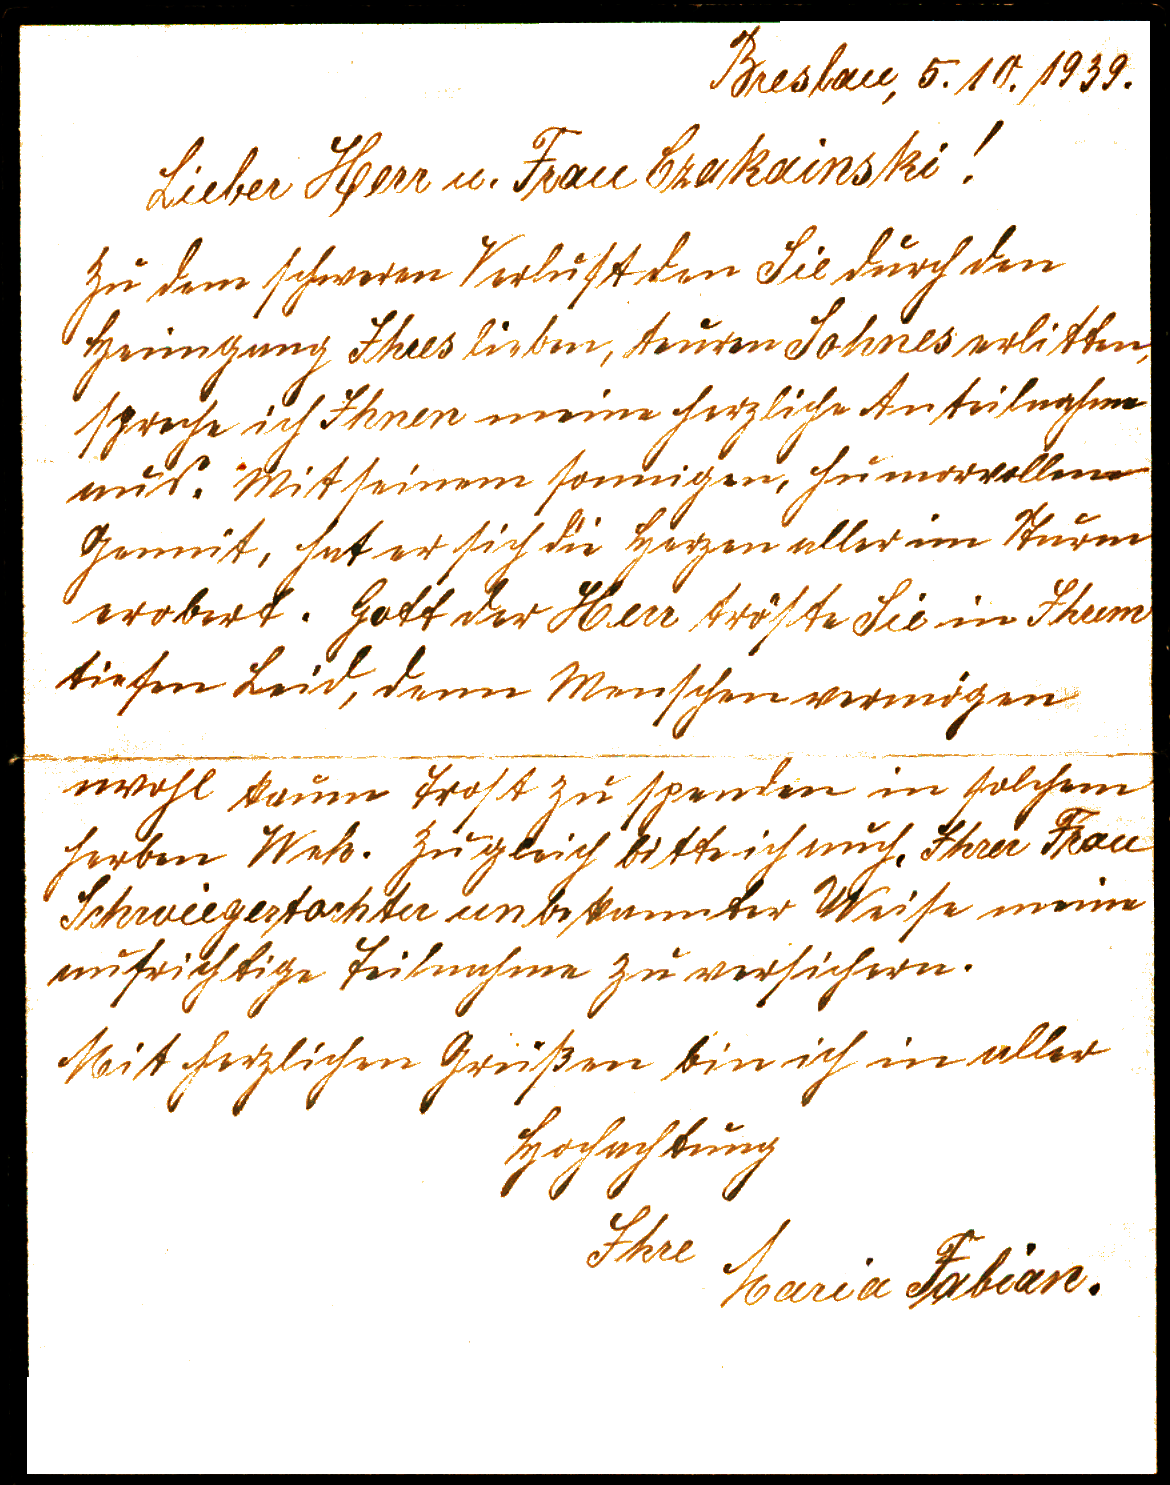 Breslau, 5.10.1939.
Lieber Herr u. Frau Czakainski!
Zu dem schweren Verlust den Sie durch den
Heimgang Ihres lieben, teuren Sohnes erlitten,
spreche ich Ihnen meine herzliche Anteilnahme
aus. Mit seinem sonnigen, humorvollem
Gemüt, hat er sich die Herzen aller im Sturm
erobert. Gott der Herr tröste Sie in Ihrem
tiefen Leid, denn Menschen vermögen
wohl kaum Trost zu spenden in solchem
herben Weh. Zugleich bitte ich auch, Ihrer Frau
Schwiegertochter unbekannter Weise meine
aufrichtige Teilnahme zu versichern.
Mit herzlichen Grüßen bin ich in aller
Hochachtung
Ihre Maria Fabian.